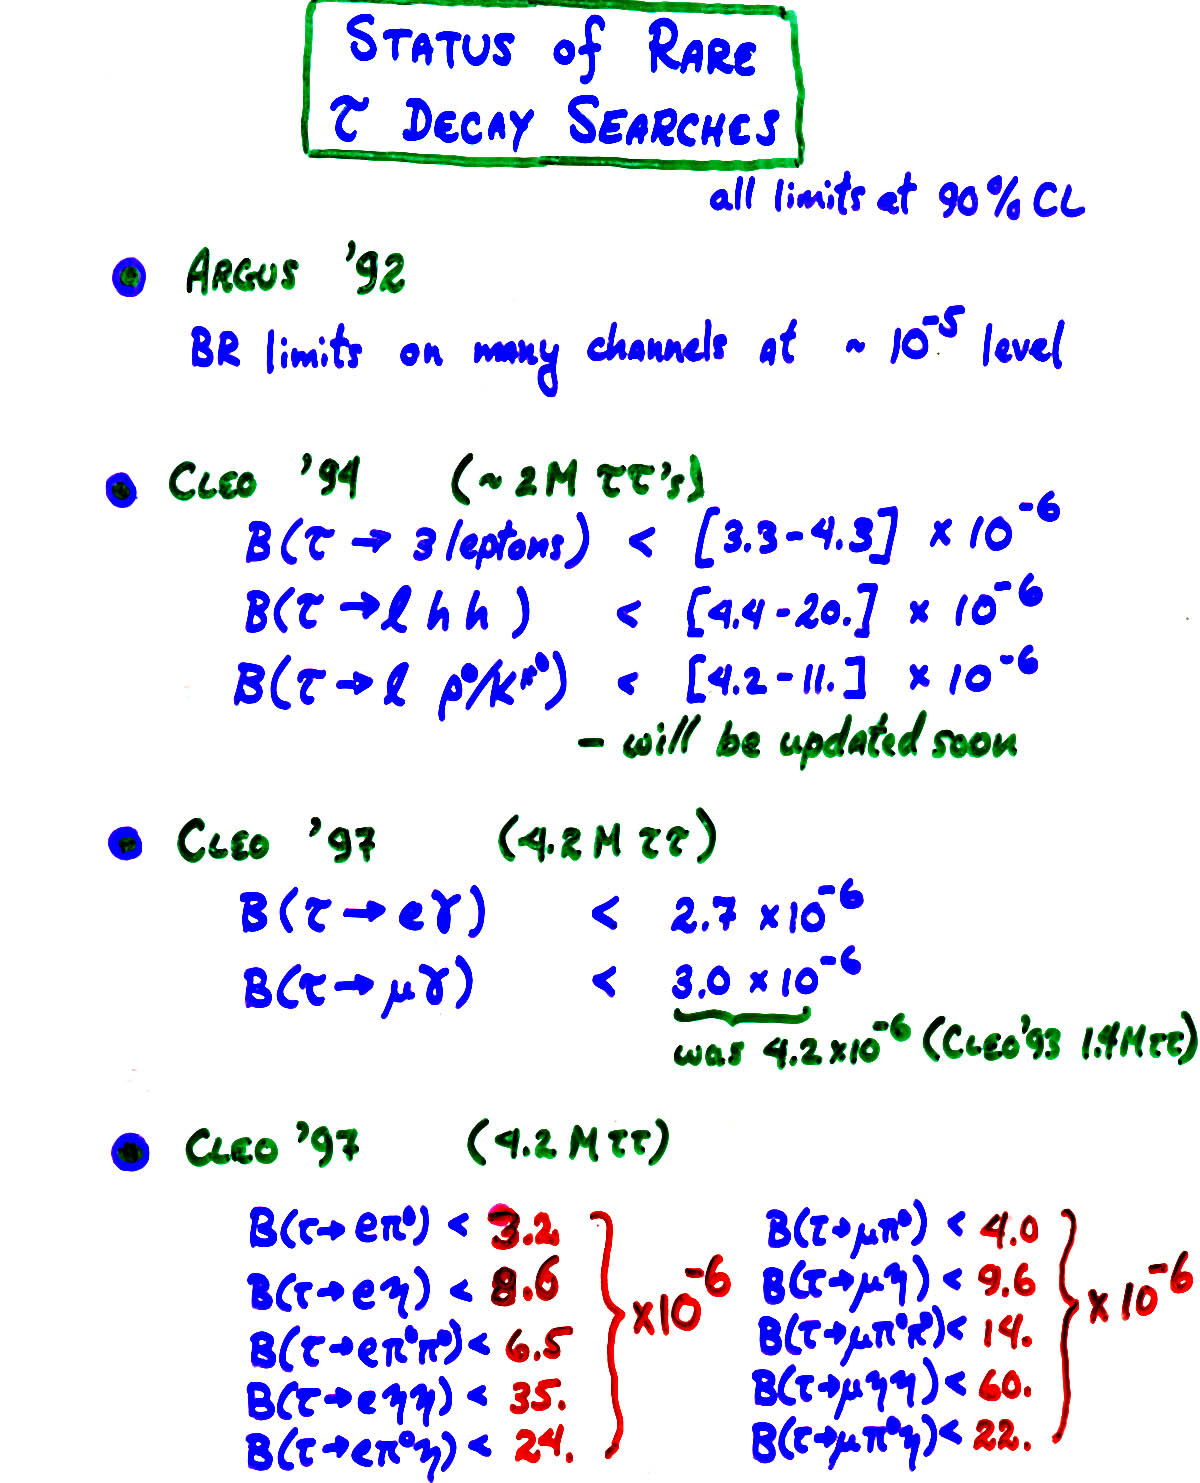 STATUS of RARE
τ DECAY SEARCHES
all limits at 90% CL
ARGUS '92
BR limits on many channels at ~ 10⁻⁵ level
CLEO '94 (~ 2M ττ's)
B(τ → 3 leptons) < [3.3-4.3] × 10⁻⁶
B(τ → l h h) < [4.4-20.] × 10⁻⁶
B(τ → l ρ⁰/K*⁰) < [4.2-11.] × 10⁻⁶
- will be updated soon
CLEO '97 (4.2 M ττ)
B(τ → eγ) < 2.7 × 10⁻⁶
B(τ → μγ) < 3.0 × 10⁻⁶
was 4.2 × 10⁻⁶ (CLEO '93 1.4M ττ)
CLEO '97 (4.2 M ττ)
B(τ → eπ⁰) < 3.2
B(τ → eη) < 8.6
B(τ → eπ⁰π⁰) < 6.5
B(τ → eηη) < 35.
B(τ → eπ⁰η) < 24.
×10⁻⁶
B(τ → μπ⁰) < 4.0
B(τ → μη) < 9.6
B(τ → μπ⁰π⁰) < 14.
B(τ → μηη) < 60.
B(τ → μπ⁰η) < 22.
× 10⁻⁶